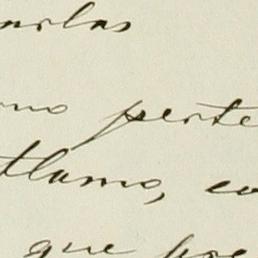 arlas
no perte
tlamo, co
que pre